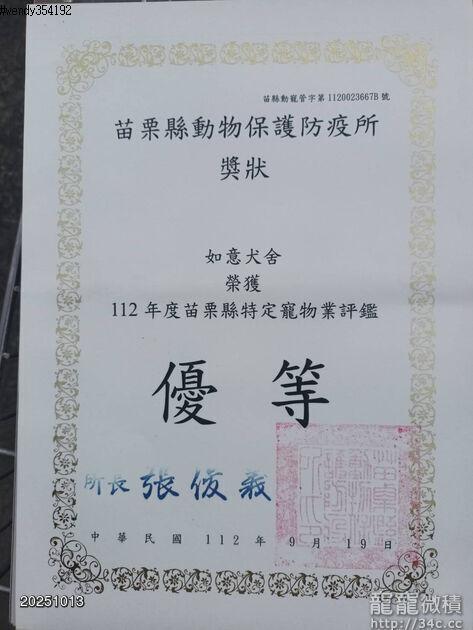 #wendy354192
苗縣動寵管字第1120023667B號
苗栗縣動物保護防疫所
獎狀
如意犬舍
榮獲
112年度苗栗縣特定寵物業評鑑
優等
所長 張俊義
中華民國 112年 9月 19日
20251013
龍龍微積
http://34c.cc